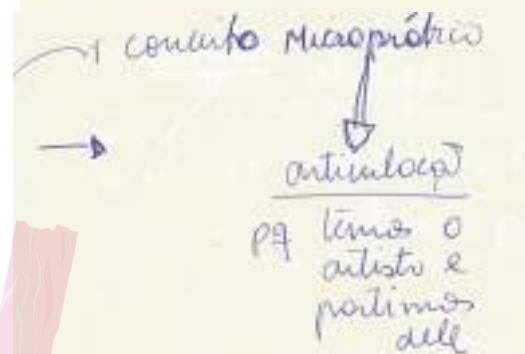 conceito Microprático
articulaçã
pq temos o
artista e
partimos
dele